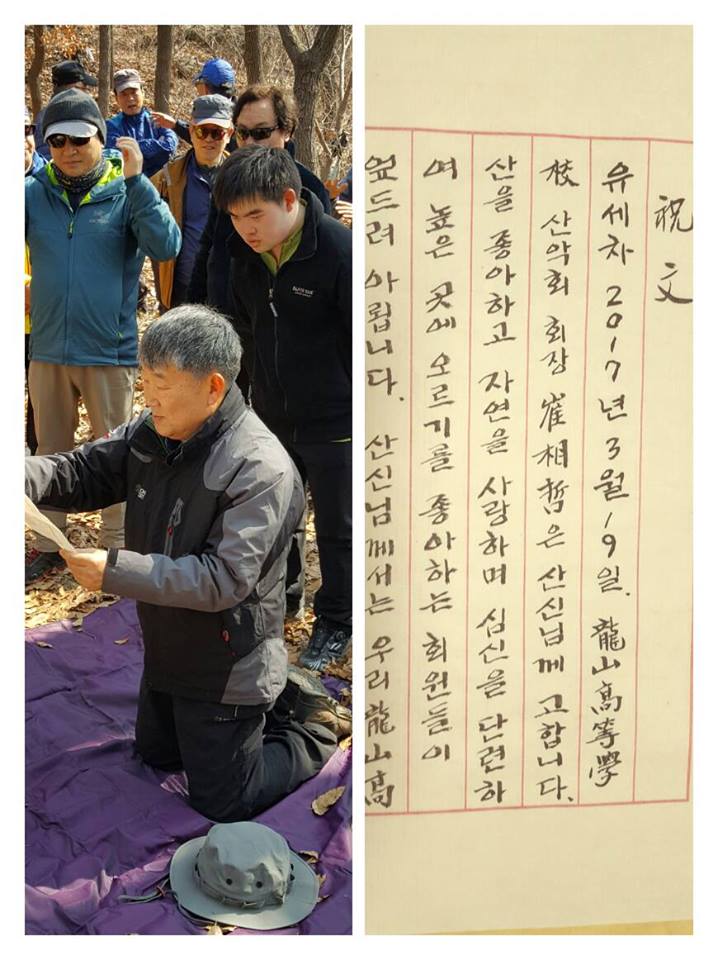 祝文
유세차 2017년 3월 19일. 龍山高等學
校 산악회 회장 崔相哲은 산신님께 고합니다.
산을 좋아하고 자연을 사랑하며 심신을 단련하
며 높은 곳에 오르기를 좋아하는 회원들이
엎드려 아룁니다. 산신님께서는 우리 龍山高